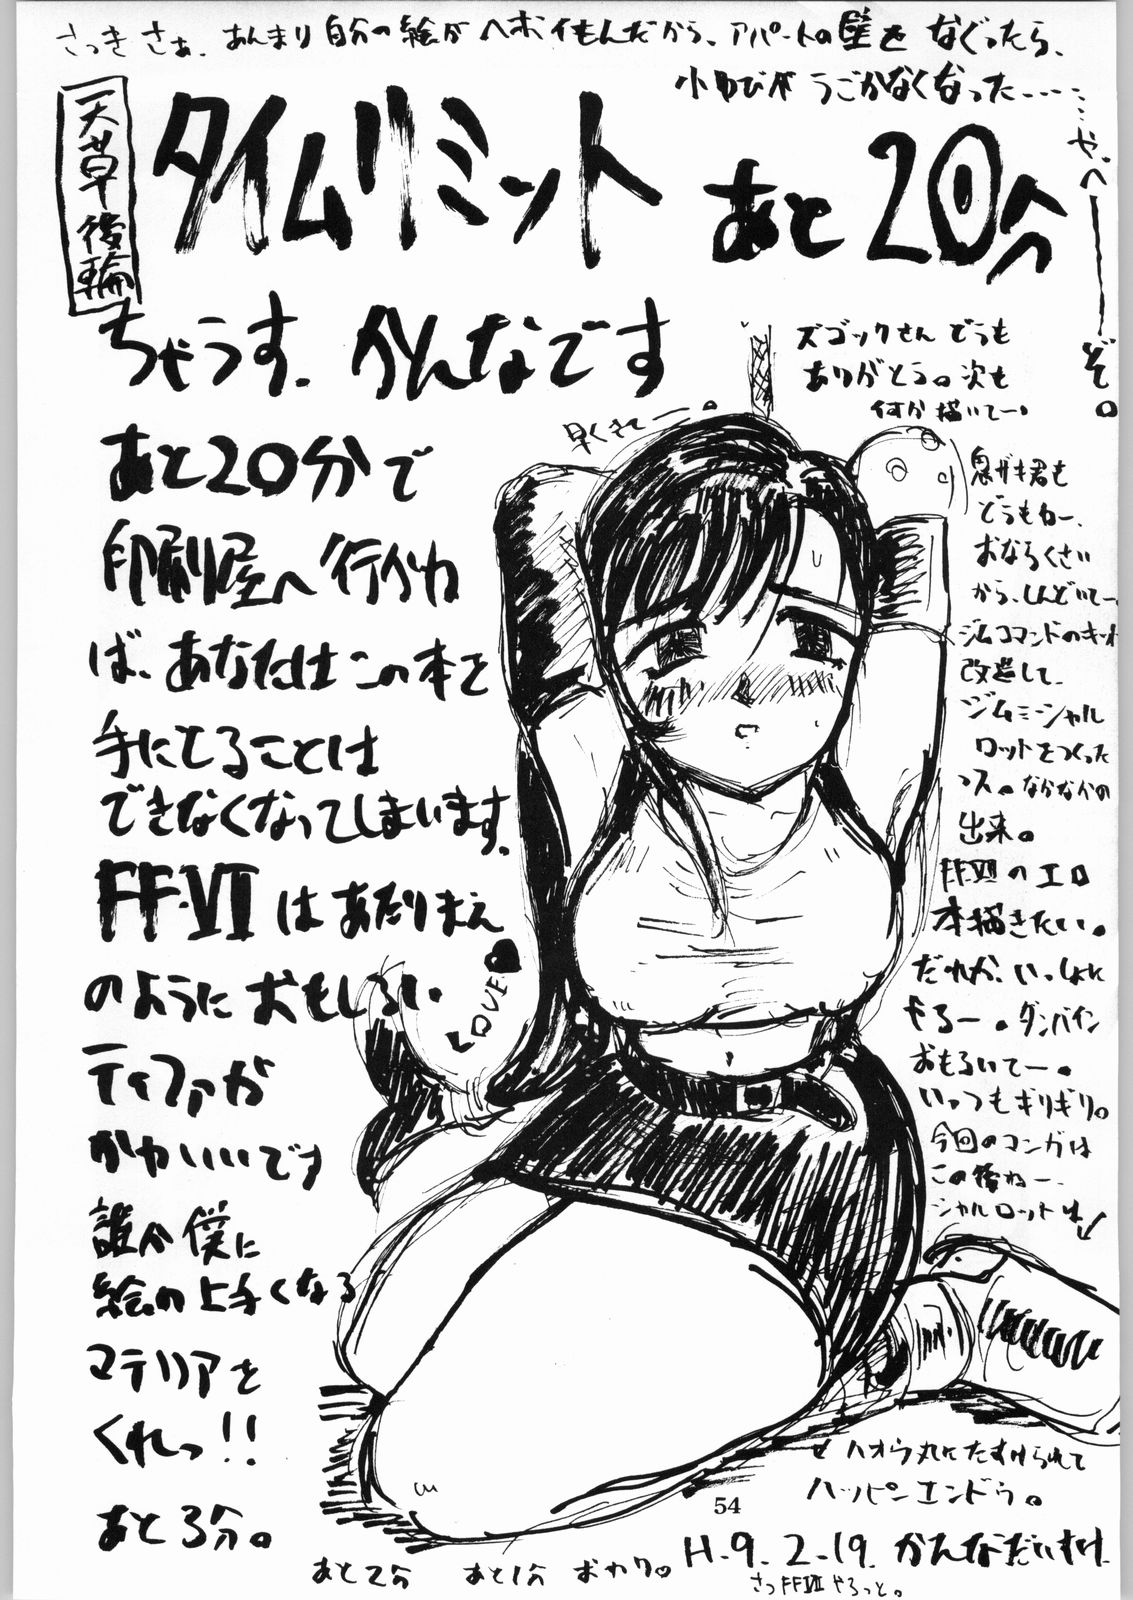 さっきさぁ、あんまり自分の絵がヘボイもんだから、アパートの壁をなぐったら、
小ゆびがうごかなくなった……
やべーーーぞ。
天草後輪
タイムリミット あと20分
ちゃうす、かんなです
あと20分で
印刷屋へ行かね
ば、あなたはこの本を
手にてることは
できなくなってしまいます。
FF・VIIはあたりまえ
のようにおもしろい
ティファが
かわいいです
誰か僕に
絵の上手くなる
マテリアを
くれっ!!
あと3分。
あと2分 あと1分 おわり。
早くきてー。
LOVE
ズゴックさんどうも
ありがとう。次も
何か描いてー。
君も
どうもねー、
おならくさい
から、しんどいてー、
ジムコマンドのキット
改造して、
ジムミーシャル
ロットをつくった
っス。なかなかの
出来。
FFVIIのエロ
本描きたい。
だれか、いっしょに
やるー。ダンバイン
おもろいてー。
いっつもギリギリ。
今回のマンガは
この後ねー、
シャルロットは
ハオウ丸にたすけられて
ハッピーエンドゥ。
54
H.9.2.19. かんなだいすけ
さっFFVIIやろっと。